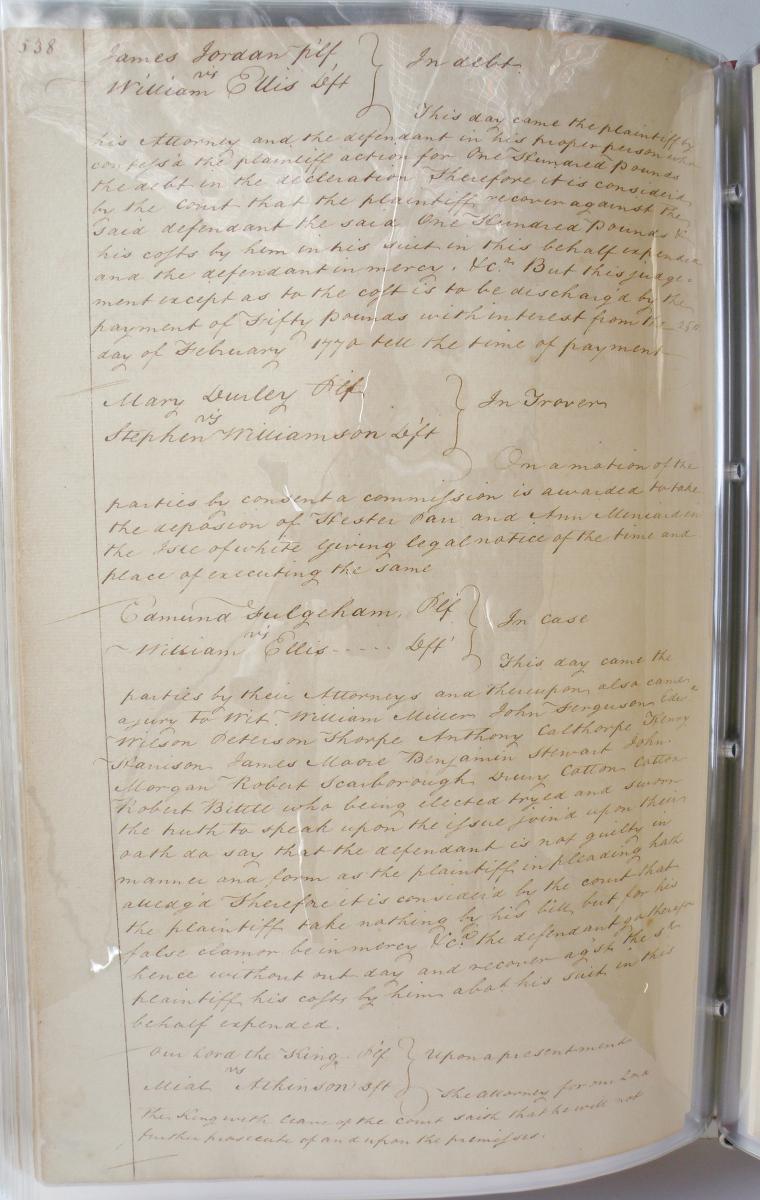 538
James Jordan plf
vs
William Ellis Dft
In debt
This day came the plaintiff by
his Attorney and the defendant in his proper person who
confess'd the plaintiff action for One Hundred Pounds
the debt in the decleration Therefore it is considerd
by the Court that the plaintiff recover against the
said defendant the said One Hundred Pounds &
his costs by him in his suit in this behalf expended
and the defendant in mercy. &c.a But this judge-
ment except as to the cost is to be discharg'd by the
payment of Fifty Pounds with interest from the
day of February 1770 tell the time of payment
Mary Durley Plf
vs
Stephen Williamson Dft
In Trover
On a motion of the
parties by consent a commission is awarded to take
the deposion of Hester Parr and Ann in
the Isle of white Giving legal notice of the time and
place of executing the same
Edmund Fulgeham. Plf
vs
William Ellis ----- Dft
In case
This day came the
parties by their Attorneys and thereupon also came
a jury to Wit. William Miller John Ferguson
Wilson Peterson Thorpe Anthony Calthorpe Henry
Harrison James Moore Benjamin Stewart John
Morgan Robert Scarborough Drury Cotton Cotton
Robert Bittle who being elected tryed and sworn
the truth to speak upon the issue join'd upon their
oath do say that the defendant is not guilty in
manner and form as the plaintiff in pleading hath
alledg'd Therefore it is consider'd by the court that
the plaintiff take nothing by his bill, but for his
false clamor be in mercy &c.a the defendant go thereof
hence without out day and recover agst the sd
plaintiff his costs by him abot his suit in this
behalf expended.
Our Lord the King. Plf
vs
Mial Atkinson Dft
Upon a presentment
The attorney for our Lord
the King with leave of the court saith that he will not
further prosecute of and upon the premisses.